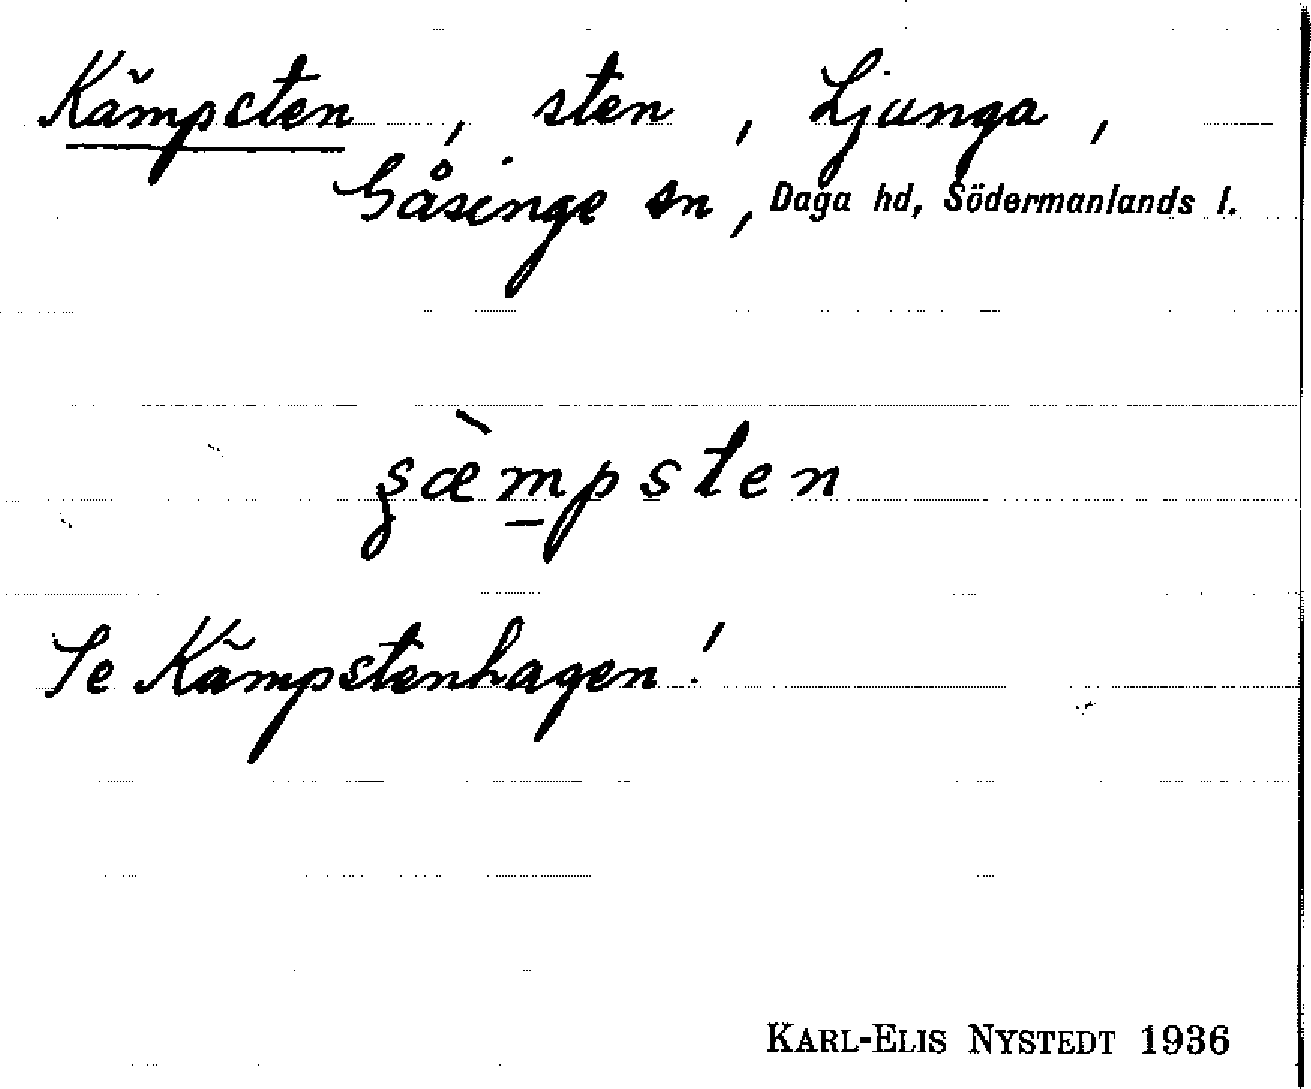 Kämpsten, sten, Ljunga,
Gåsinge sn, Daga hd, Södermanlands l.
ʂæ̀mpsten
Se Kämpstenhagen!
KARL-ELIS NYSTEDT 1936